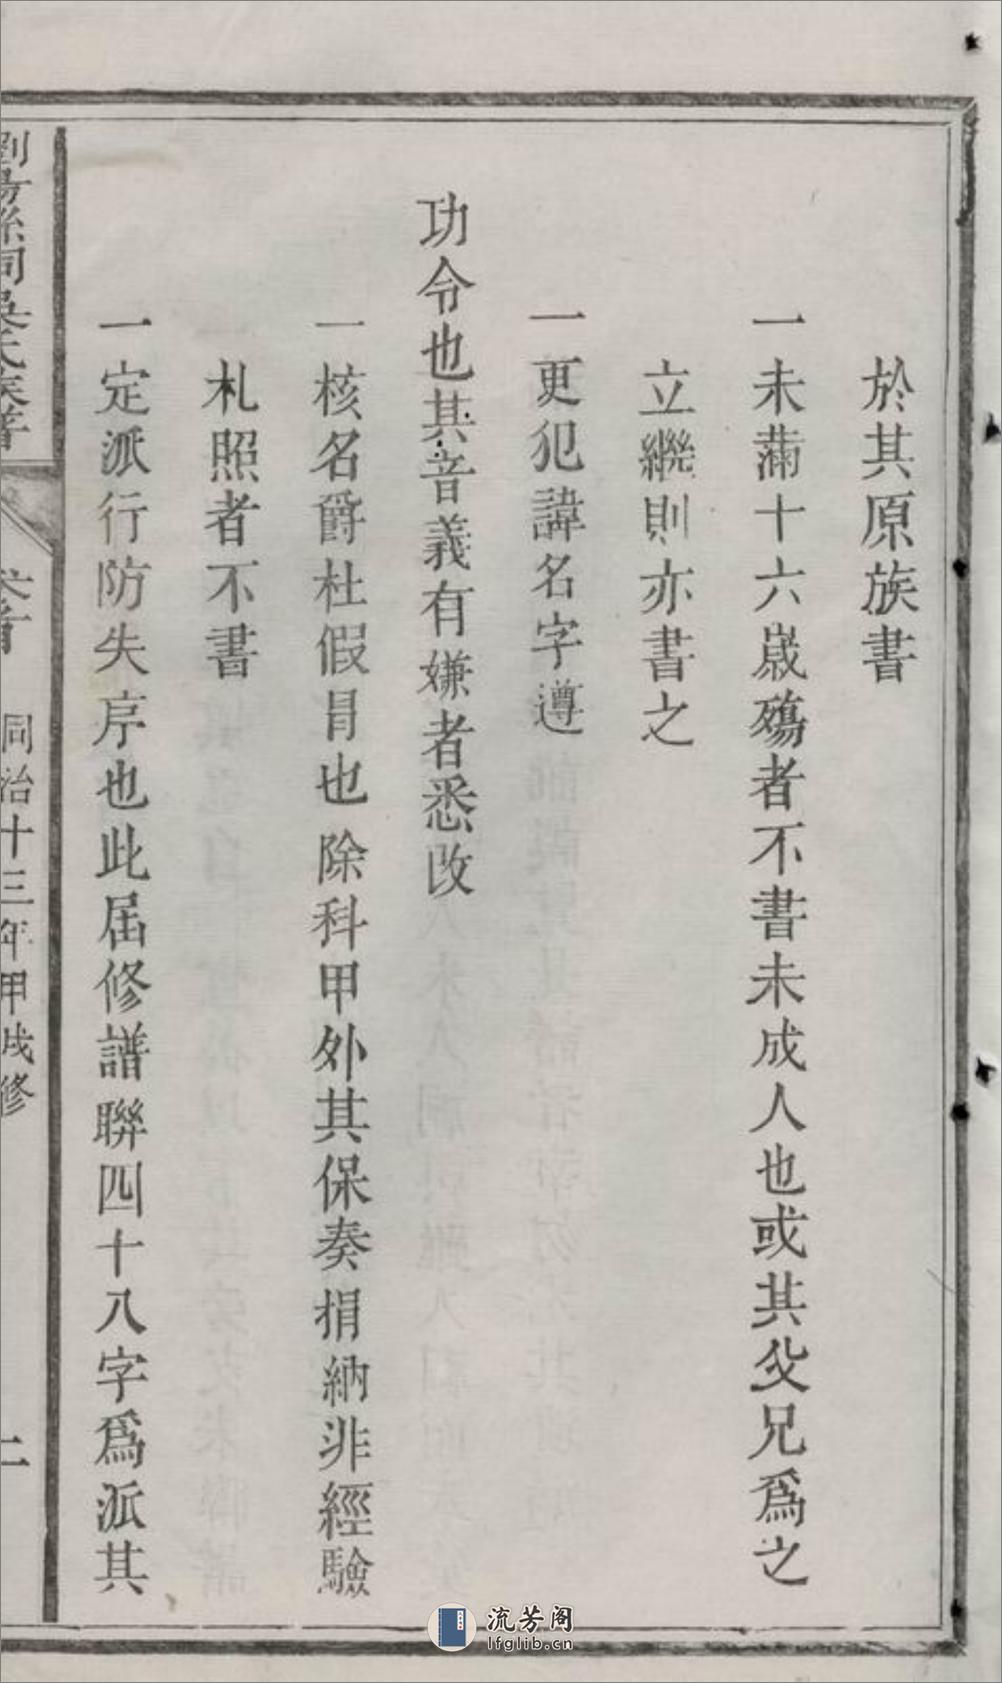 於其原族書
一未滿十六歲殤者不書未成人也或其父兄爲之
立繼則亦書之
一更犯諱名字遵
功令也其音義有嫌者悉改
一核名爵杜假冒也除科甲外其保奏捐納非經驗
札照者不書
一定派行防失序也此屆修譜聯四十八字爲派其
吳氏族譜
卷首
同治十三年甲戌修
二
流芳阁
lfglib.cn